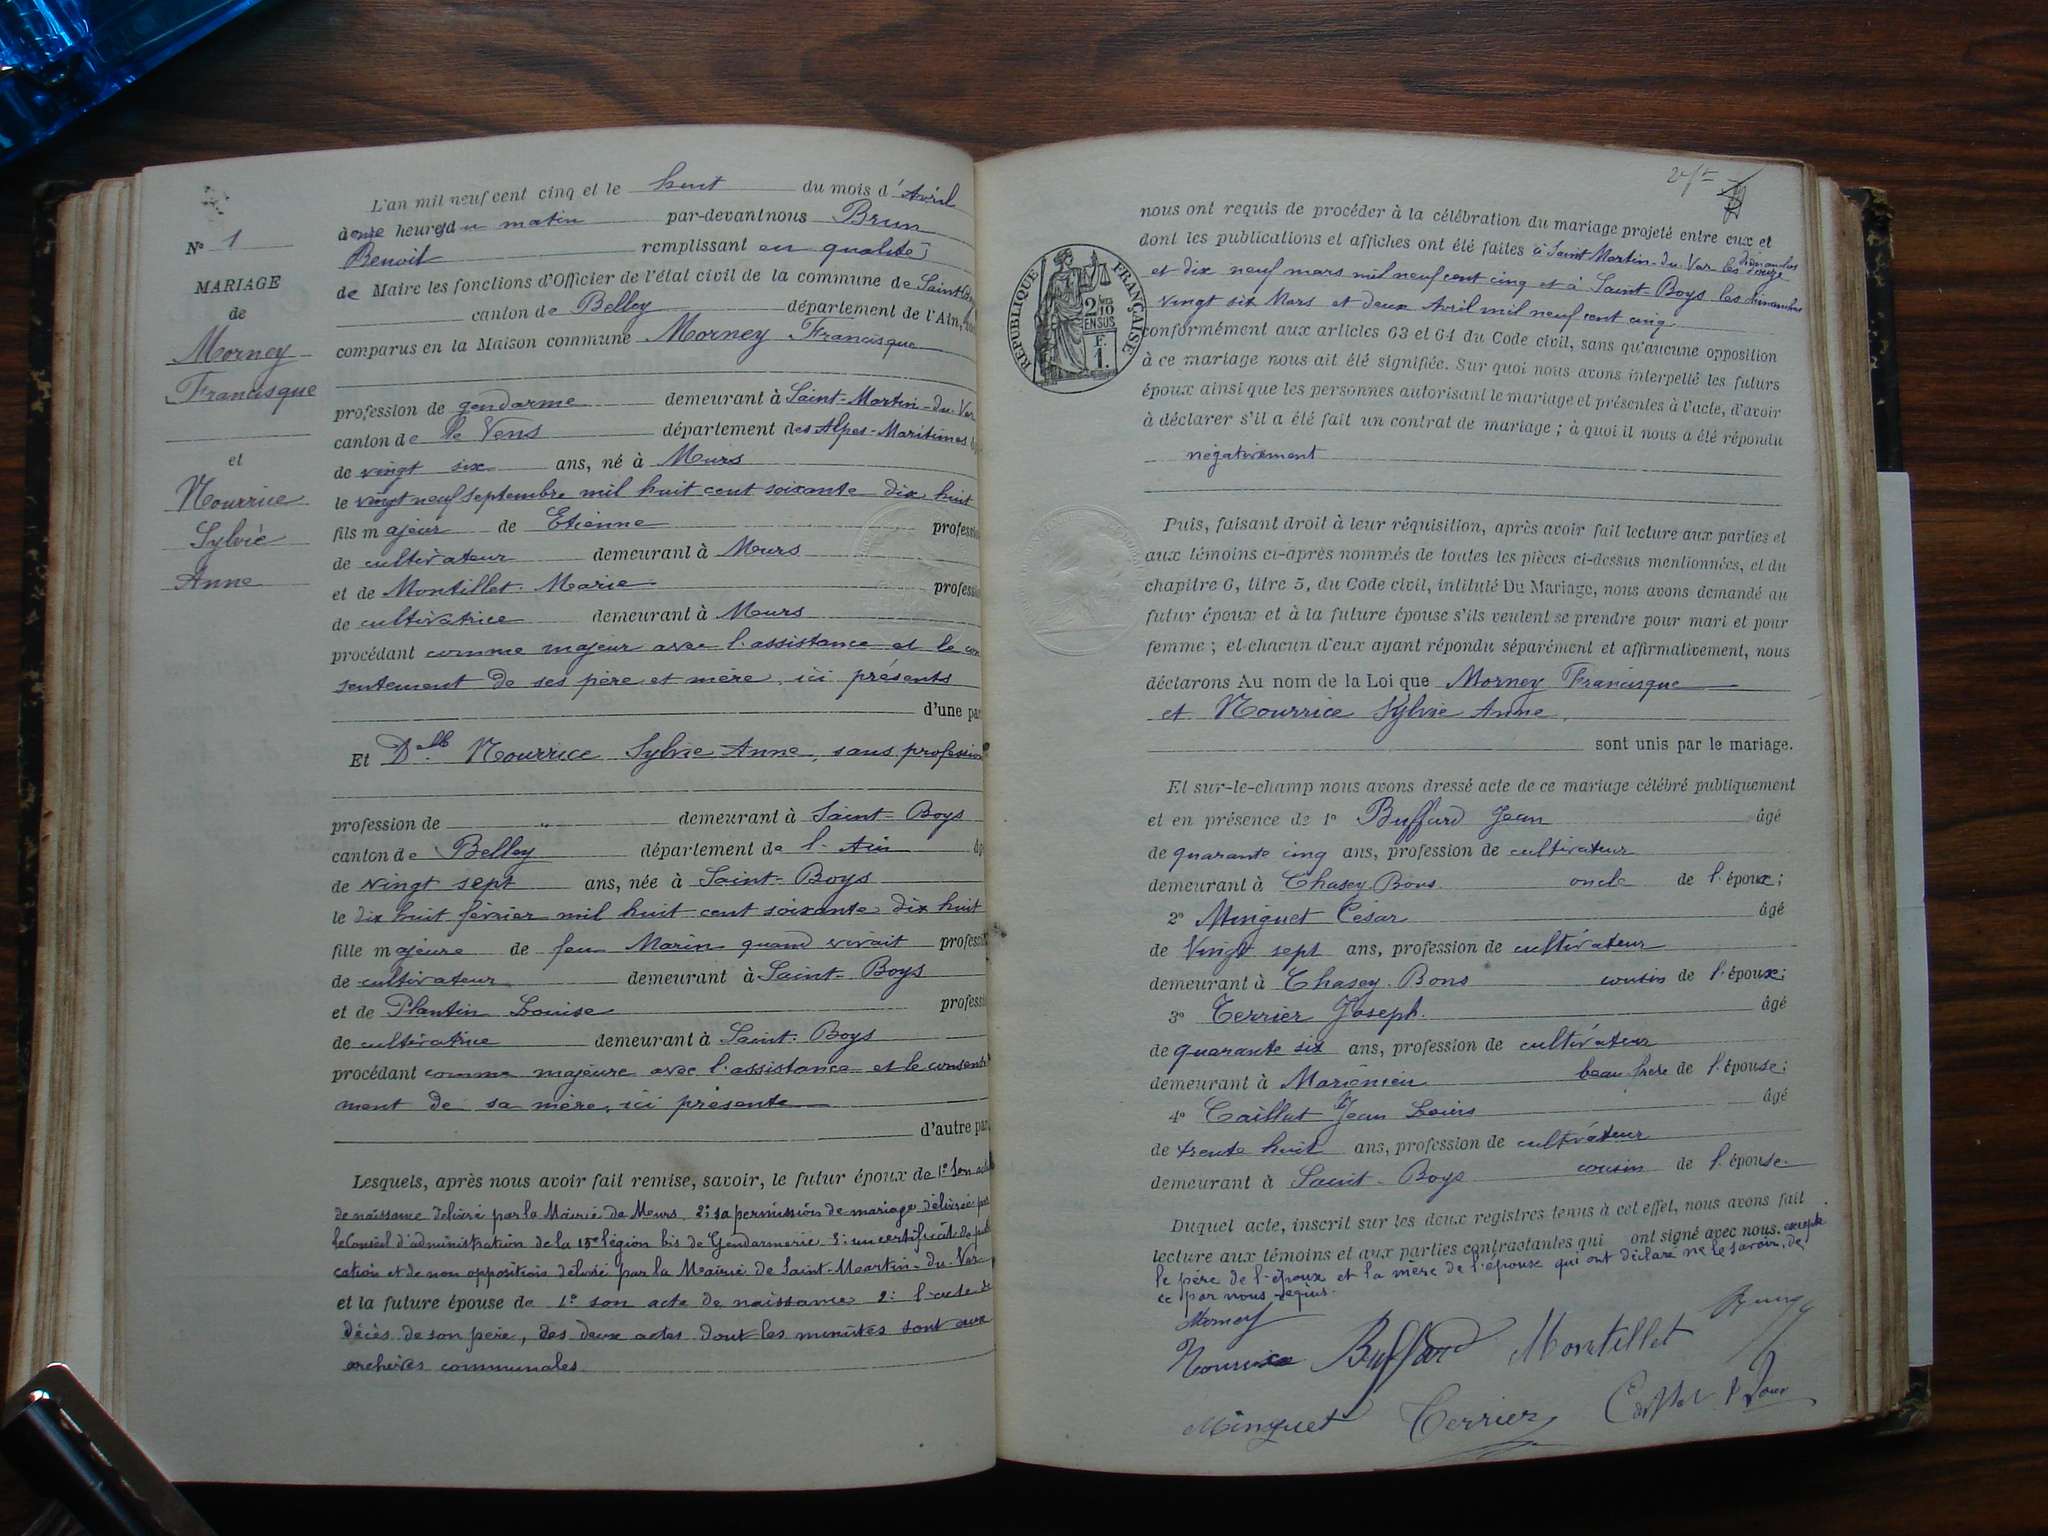 L'an mil neuf cent cinq et le huit du mois d'Avril
à onze heures du matin par-devant nous Brun
Benoit remplissant en qualité
de Maire les fonctions d'Officier de l'état civil de la commune de Saint
canton de Belley département de l'Ain,
comparus en la Maison commune Morney Francisque
profession de gendarme demeurant à Saint-Martin-du-Var
canton de Vens département des Alpes-Maritimes
de vingt six ans, né à Murs
le vingt neuf septembre mil huit cent soixante dix huit
fils majeur de Etienne professi
de cultivateur demeurant à Murs
et de Montillet Marie professi
de cultivatrice demeurant à Murs
procédant comme majeur avec l'assistance et le con
sentement de ses père et mère, ici présents
d'une par
Et Dlle Nourrice Sylvie Anne, sans profession
profession de " demeurant à Saint-Boys
canton de Belley département de l'Ain
de vingt sept ans, née à Saint-Boys
le dix huit février mil huit cent soixante dix huit
fille majeure de feu Marin quand vivait professi
de cultivateur demeurant à Saint-Boys
et de Plantin Louise professi
de cultivatrice demeurant à Saint-Boys
procédant comme majeure avec l'assistance et le consente
ment de sa mère, ici présente
d'autre par
Lesquels, après nous avoir fait remise, savoir, le futur époux de 1° son acte
de naissance délivré par la Mairie de Murs 2° sa permission de mariage délivrée par
le Conseil d'administration de la 15e légion bis de Gendarmerie 3° un certificat de publi
cation et de non opposition délivré par la Mairie de Saint-Martin-du-Var
et la future épouse de 1° son acte de naissance 2° l'acte de
décès de son père, des deux actes dont les minutes sont aux
archives communales
N° 1
MARIAGE
de
Morney
Francisque
et
Nourrice
Sylvie
Anne
nous ont requis de procéder à la célébration du mariage projeté entre eux et
dont les publications et affiches ont été faites à Saint Martin-du-Var les dimanches douze
et dix neuf mars mil neuf cent cinq et à Saint-Boys les dimanches
vingt six Mars et deux Avril mil neuf cent cinq
conformément aux articles 63 et 64 du Code civil, sans qu'aucune opposition
à ce mariage nous ait été signifiée. Sur quoi nous avons interpellé les futurs
époux ainsi que les personnes autorisant le mariage et présentes à l'acte, d'avoir
à déclarer s'il a été fait un contrat de mariage ; à quoi il nous a été répondu
négativement
RÉPUBLIQUE FRANÇAISE
2 10mes
EN SUS
F.
1.
Puis, faisant droit à leur réquisition, après avoir fait lecture aux parties et
aux témoins ci-après nommés de toutes les pièces ci-dessus mentionnées, et du
chapitre 6, titre 5, du Code civil, intitulé Du Mariage, nous avons demandé au
futur époux et à la future épouse s'ils veulent se prendre pour mari et pour
femme ; et chacun d'eux ayant répondu séparément et affirmativement, nous
déclarons Au nom de la Loi que Morney Francisque
et Nourrice Sylvie Anne.
sont unis par le mariage.
Et sur-le-champ nous avons dressé acte de ce mariage célébré publiquement
et en présence de 1° Buffard Jean âgé
de quarante cinq ans, profession de cultivateur
demeurant à Chasey Bons oncle de l'époux ;
2° Minguet César âgé
de vingt sept ans, profession de cultivateur
demeurant à Chasey Bons cousin de l'époux ;
3° Terrier Joseph. âgé
de quarante six ans, profession de cultivateur
demeurant à Marignieu beau-frère de l'épouse ;
4° Caillat Jean Louis âgé
de trente huit ans, profession de cultivateur
demeurant à Saint-Boys cousin de l'épouse.
Duquel acte, inscrit sur les deux registres tenus à cet effet, nous avons fait
lecture aux témoins et aux parties contractantes qui ont signé avec nous. excepté
le père de l'époux et la mère de l'époux qui ont déclaré ne le savoir, de
ce par nous requis.
Morney
Nourrice Buffard Montillet
Minguet Terrier